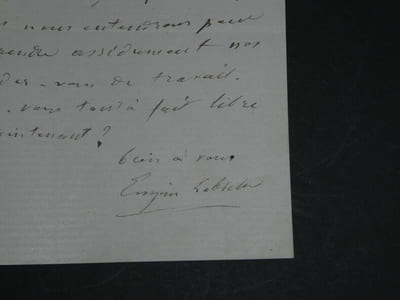 nous entendrons pour
assidûment nos
vous de travail.
vous tout à fait libre
maintenant?
bien à vous
Eugène Labiche